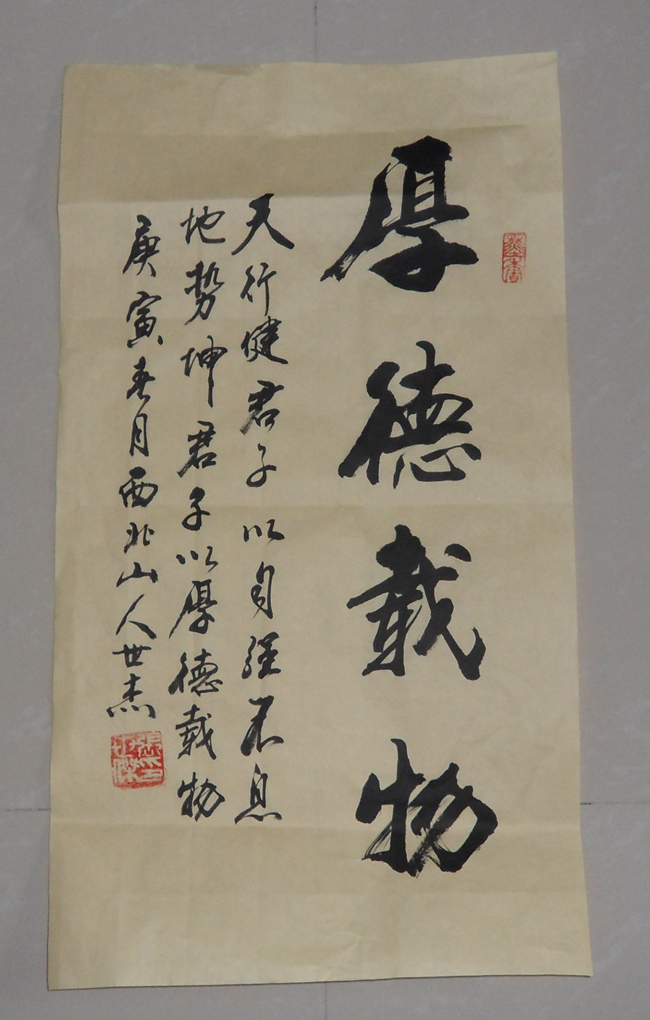 厚德载物
天行健君子以自强不息
地势坤君子以厚德载物
庚寅春月西北山人世杰